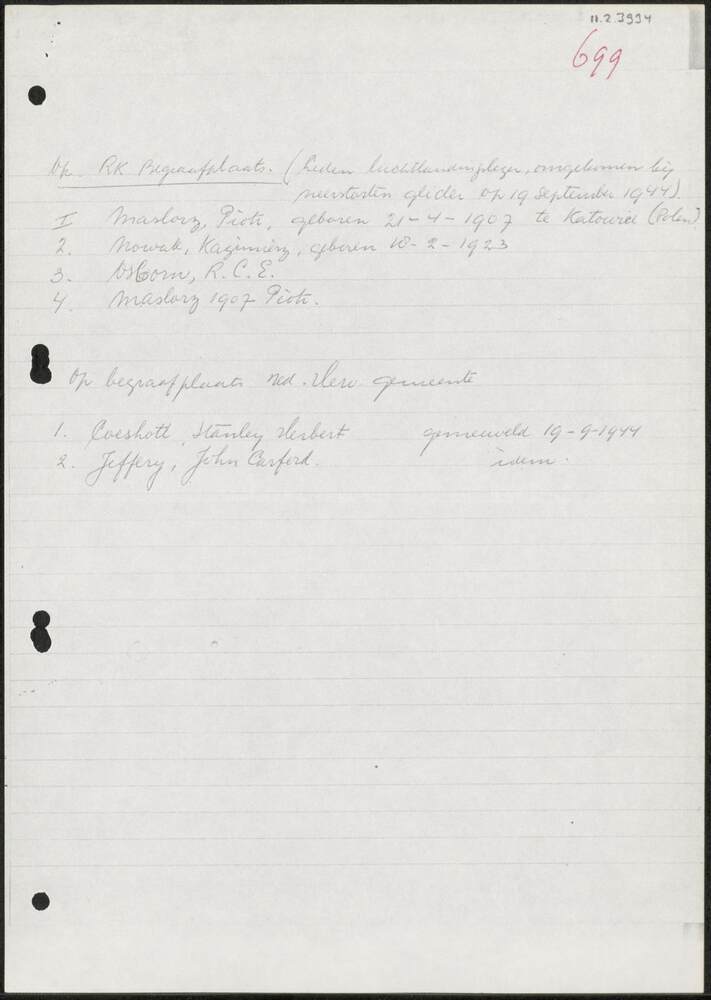 11.2.3994
699
Op RK Begraafplaats. (Leden luchtlandingsleger, omgekomen bij
neerstorten glider op 19 September 1944).
I Maslorz, Piotr, geboren 21-4-1907 te Katowice (Polen)
2. Nowak, Kazimierz, geboren 10-2-1923
3. Osborn, R.C.E.
4. Maslorz 1907 Piotr.
Op begraafplaats Ned. Herv. gemeente
1. Coeshott, Stanley Herbert gesneuveld 19-9-1944
2. Jeffery, John Carferd. idem.